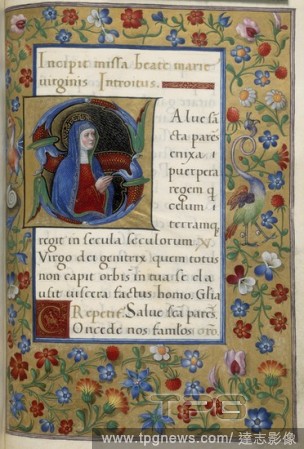 Incipit missa beate marie
virginis Introitus.
SAlue sā
cta parēs
enixa
puerpera
regem q̄
celum
terramq̄
regit in secula seculorum
Virgo dei genitrix quem totus
non capit orbis in tua se cla
usit uiscera factus homo. Glia
Repetit. Salue scā parēs
COncede nos famlos orō.
TPG
www.tpgnews.com/達志影像